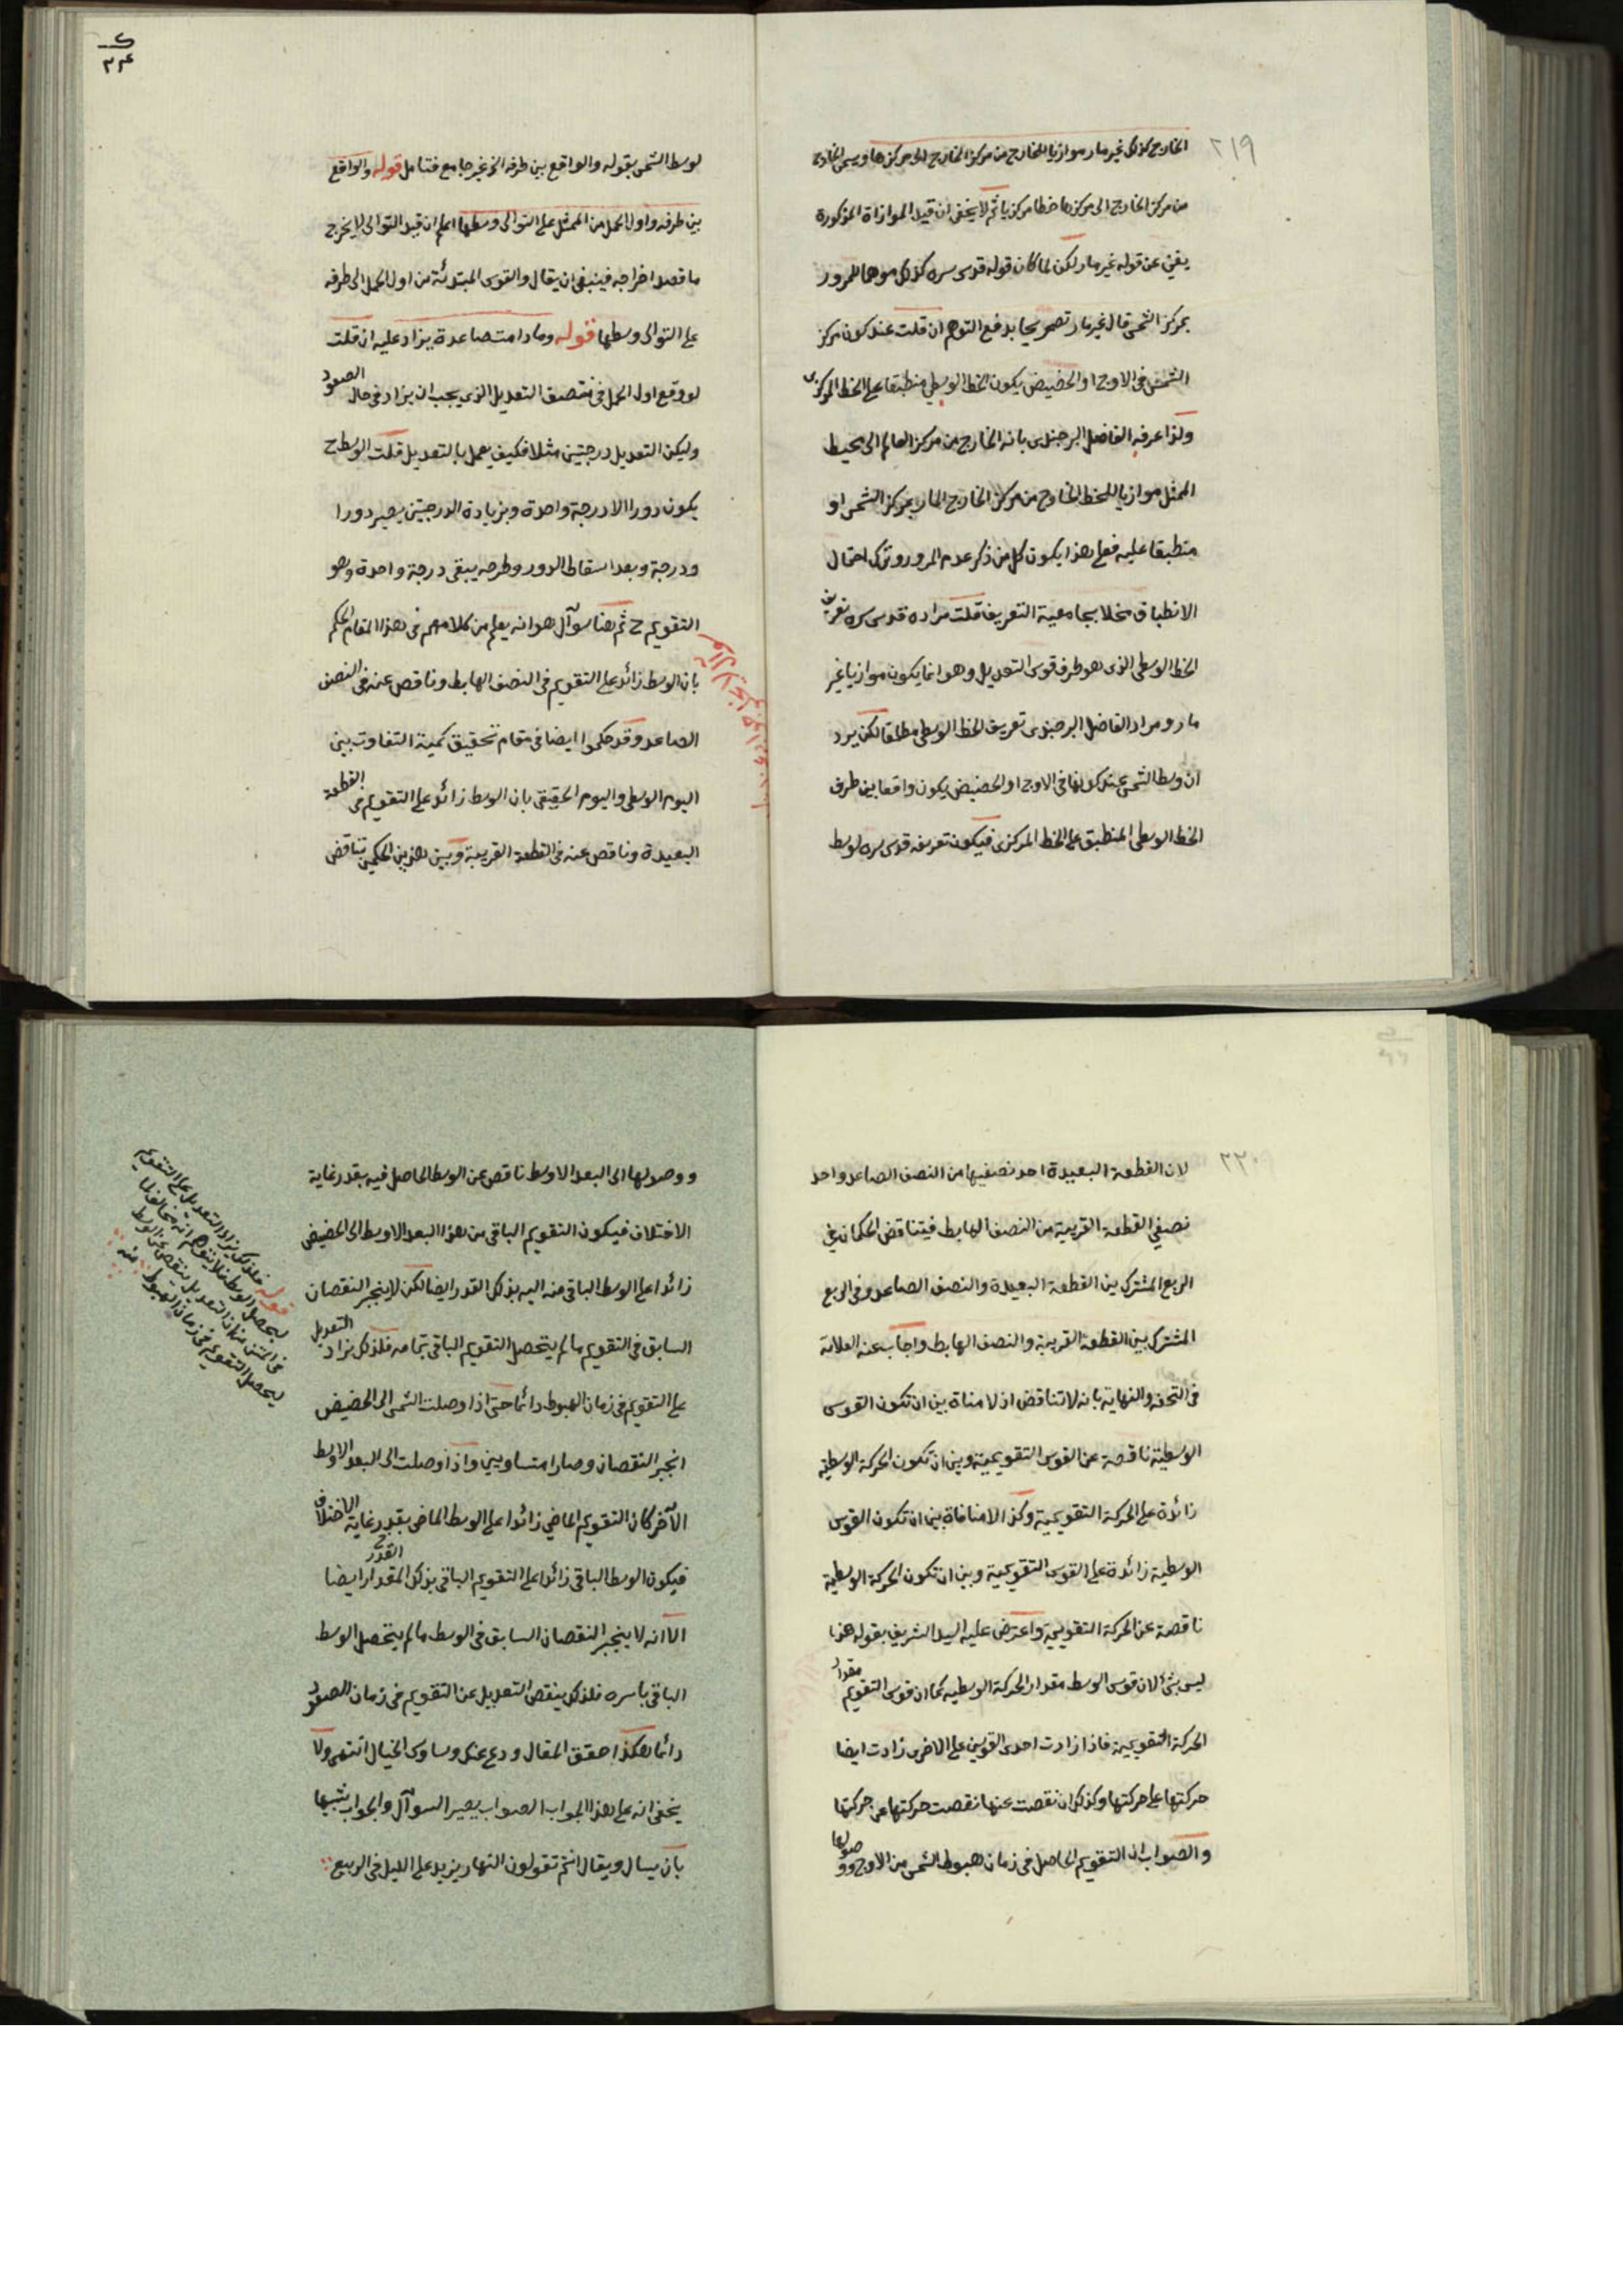 ٢١٩
الخارج كذلك غير مار موازيا للخارج من مركز الخارج الى مركزها ويسمى الخارج
من مركز الخارج الى مركزها خطا مركزيا ثم لا يخفى ان قيد الموازاة المذكورة
يغني عن قوله غير مار لكن لما كان قوله قدس سره كذلك موهما للمرور
بمركز الشمس قال غير مار تصريحا بدفع التوهم ان قلت عند كون مركز
الشمس في الاوج او الحضيض يكون الخط الوسطي منطبقا على الخط المركزى
ولذا عرفه الفاضل البرجندى بانه الخارج من مركز العالم الى محيط
الممثل موازيا للخط الخارج من مركز الخارج المار بمركز الشمس او
منطبقا عليه فعلى هذا يكون كل من ذكر عدم المرور وترك احتمال
الانطباق مخلا بجامعية التعريف قلت مراده قدس سره تعريف
الخط الوسطى الذى هو طرف قوس التعديل وهو انما يكون موازيا غير
مار ومراد الفاضل البرجندى تعريف الخط الوسطى مطلقا لكن يرد
ان وسط الشمس عند كونها في الاوج او الحضيض يكون واقعا بين طرف
الخط الوسطى المنطبق على الخط المركزى فيكون تعريفه قدس سره لوسط
لوسط الشمس بقوله والواقع بين طرفه الخ غير جامع فتامل قوله والواقع
بين طرفه واول الحمل من الممثل على التوالى وسطها اعلم ان قيد التوالى لا يخرج
ما قصد اخراجه فينبغى ان يقال والقوس المبتدئة من اول الحمل الى طرفه
على التوالى وسطها قوله وما دامت صاعدة يزاد عليه ان قلت
لو وقع اول الحمل في منتصف التعديل الذى يجب ان يزاد فى حال الصعود
وليكن التعديل درجتين مثلا فكيف يعمل بالتعديل قلت الوسط ح
يكون دورا الا درجة واحدة وبزيادة الدرجتين يصير دورا
ودرجة وبعد اسقاط الدور وطرحه يبقى درجة واحدة وهو
التقويم ح ثم هنا سوآل هو انه يعلم من كلامهم فى هذا المقام الحكم
بان الوسط زائد على التقويم فى النصف الهابط وناقص عنه فى النصف
الصاعد وقد حكموا ايضا فى مقام تحقيق كمية التفاوت بين
اليوم الوسطى واليوم الحقيقى بان الوسط زائد على التقويم فى القطعة
البعيدة وناقص عنه فى القطعة القريبة وبين هذين الحكمين تناقض
٢٢٠
لان القطعة البعيدة احد نصفيها من النصف الصاعد واحد
نصفي القطعة القريبة من النصف الهابط فيتناقض الحكمان في
الربع المشترك بين القطعة البعيدة والنصف الصاعد وفى الربع
المشترك بين القطعة القريبة والنصف الهابط واجاب عنه العلامة
فى التحفة والنهاية بانه لا تناقض اذ لا منافاة بين ان تكون القوس
الوسطية ناقصة عن القوس التقويمية وبين ان تكون الحركة الوسطية
زائدة على الحركة التقويمية وكذا لا منافاة بين ان تكون القوس
الوسطية زائدة على القوس التقويمية وبين ان تكون الحركة الوسطية
ناقصة عن الحركة التقويمية واعترض عليه السيد الشريف بقوله هذا
ليس بشئ لان قوس الوسط مقدار الحركة الوسطيه كما ان قوس التقويم مقدار
الحركة التقويمية فاذا زادت احدى القوسين على الاخرى زادت ايضا
حركتها على حركتها وكذلك ان نقصت عنها نقصت حركتها عن حركتها
والصواب ان التقويم الحاصل فى زمان هبوط الشمس من الاوج ووصولها
ووصولها الى البعد الاوسط ناقص عن الوسط الحاصل فيه بقدر غاية
الاختلاف فيكون التقويم الباقى من هذا البعد الاوسط الى الحضيض
زائدا على الوسط الباقى منه اليه بذلك القدر ايضا لكن لا ينجبر النقصان
السابق فى التقويم ما لم يتحصل التقويم الباقى بتمامه فلذلك يزاد التعديل
على التقويم فى زمان الهبوط دائما حتى اذا وصلت الشمس الى الحضيض
انجبر النقصان وصارا متساويين واذا وصلت الى البعد الاوسط
الآخر كان التقويم الماضي زائدا على الوسط الماضى بقدر غاية الاختلاف
فيكون الوسط الباقى زائدا على التقويم الباقى بذلك المقدار ايضا
القدر
الا انه لا ينجبر النقصان السابق فى الوسط ما لم يتحصل الوسط
الباقى باسره فلذلك ينقص التعديل عن التقويم فى زمان الصعود
دائما هكذا حقق المقال ودع عنك وساوس الخيال انتهى ولا
يخفى انه على هذا الجواب الصواب يصير السوآل والجواب شبيها
بان يسال ويقال انتم تقولون النهار يزيد على الليل فى الربيع
قوله فلذلك يزاد التعديل على التقويم
ليحصل الوسط فلا يتوهم انه مخالف لما
فى المتن من ان التعديل ينقص عن الوسط
ليحصل التقويم فى زمان الهبوط منه